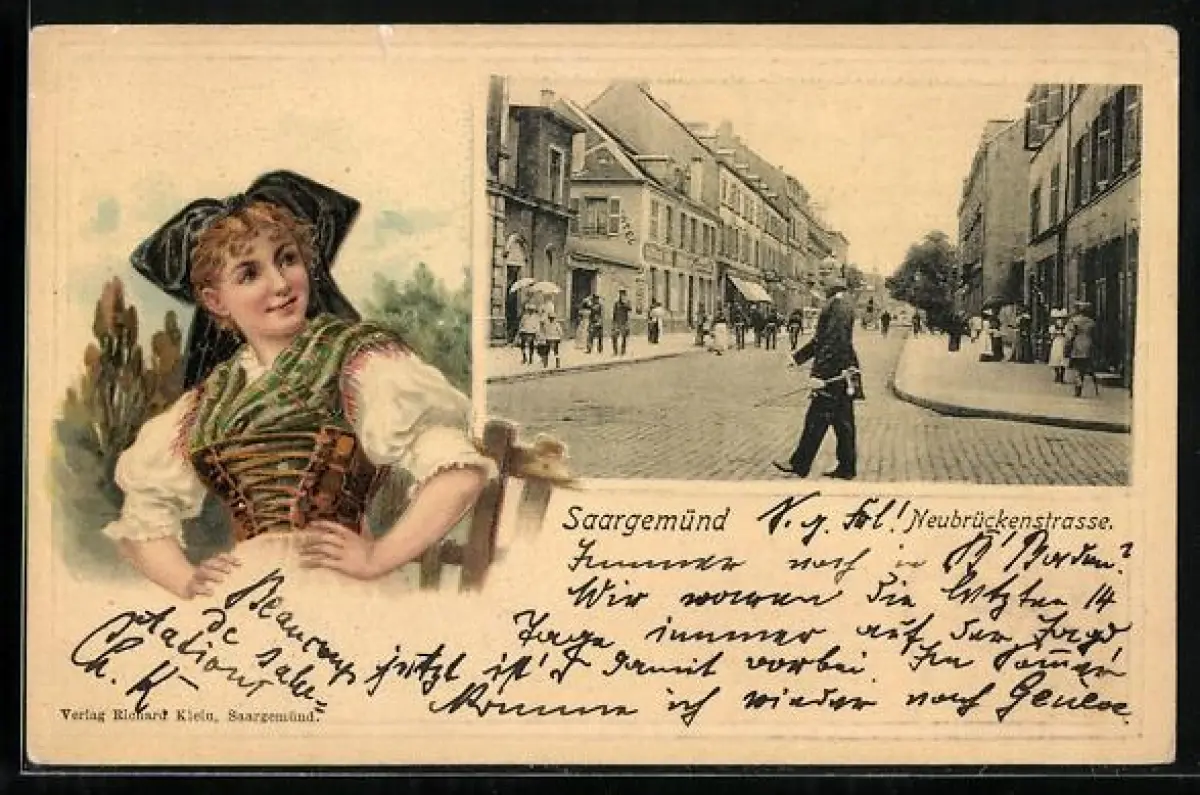 Saargemünd
Neubrückenstrasse.
Immer noch in B' Baden?
Wir waren die letzten 14
Tage immer auf der Jagd,
jetzt ist's damit vorbei. Im
komme ich wieder nach
Beaucoup
de
salutations
Ch. K
Verlag Richard Klein, Saargemünd.